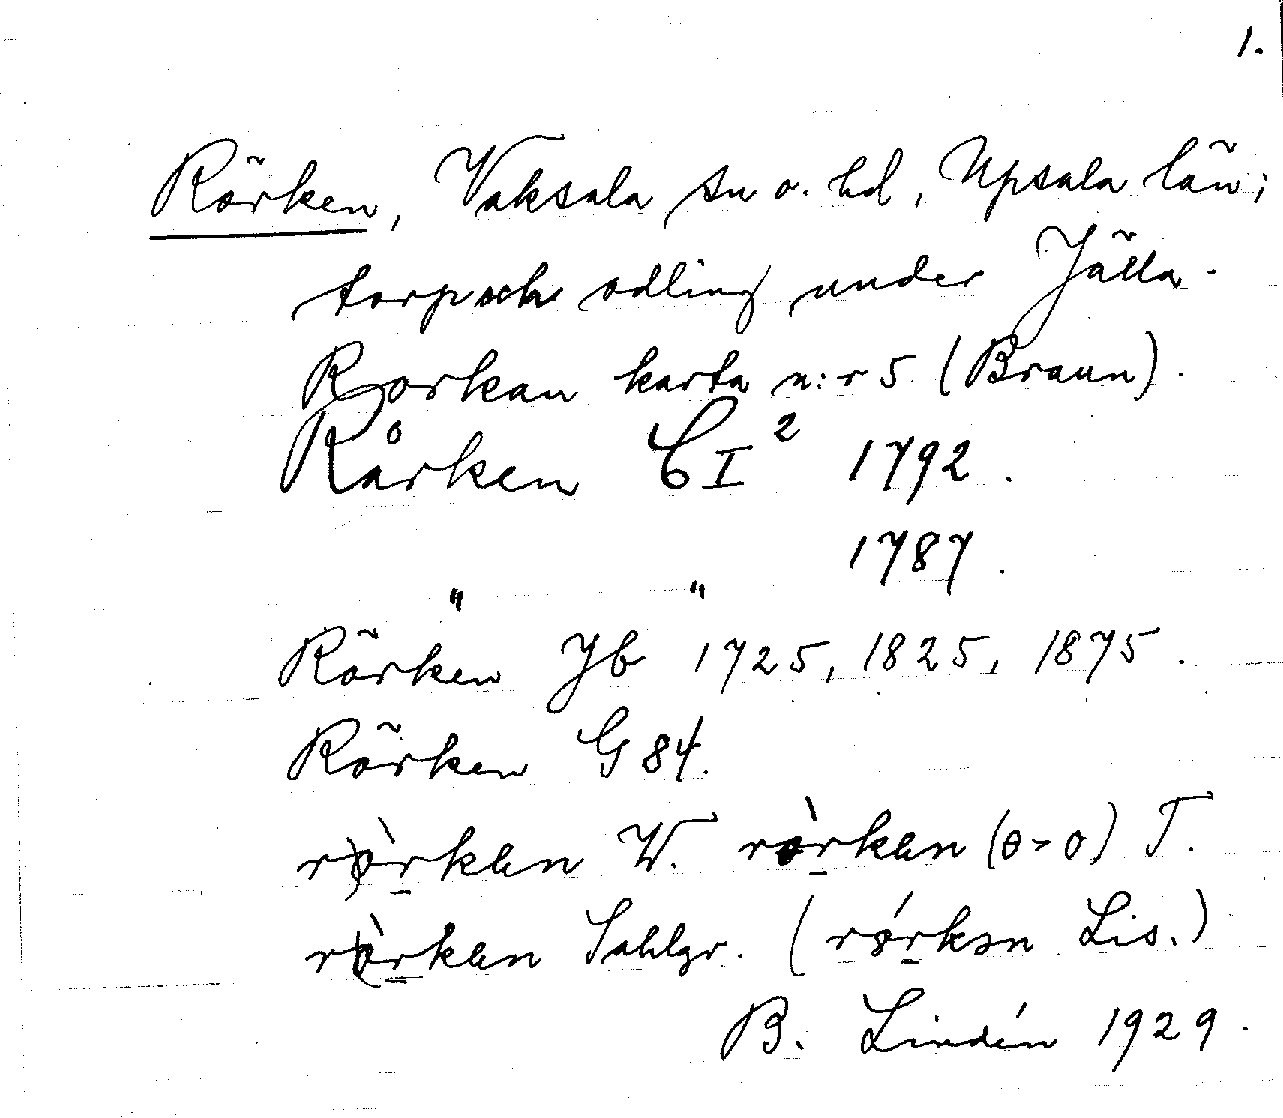 1.
Rörken, Vaksala sn o. hd, Upsala län;
torp och odling under Jälla.
Rorkan karta n:r 5 (Braun).
Rårken C I² 1792.
1787.
" "
Rörken Jb 1725, 1825, 1875.
Rörken G 84.
W. (o-o) T.
Sahlgr. ( Lis.)
B. Lindén 1929.